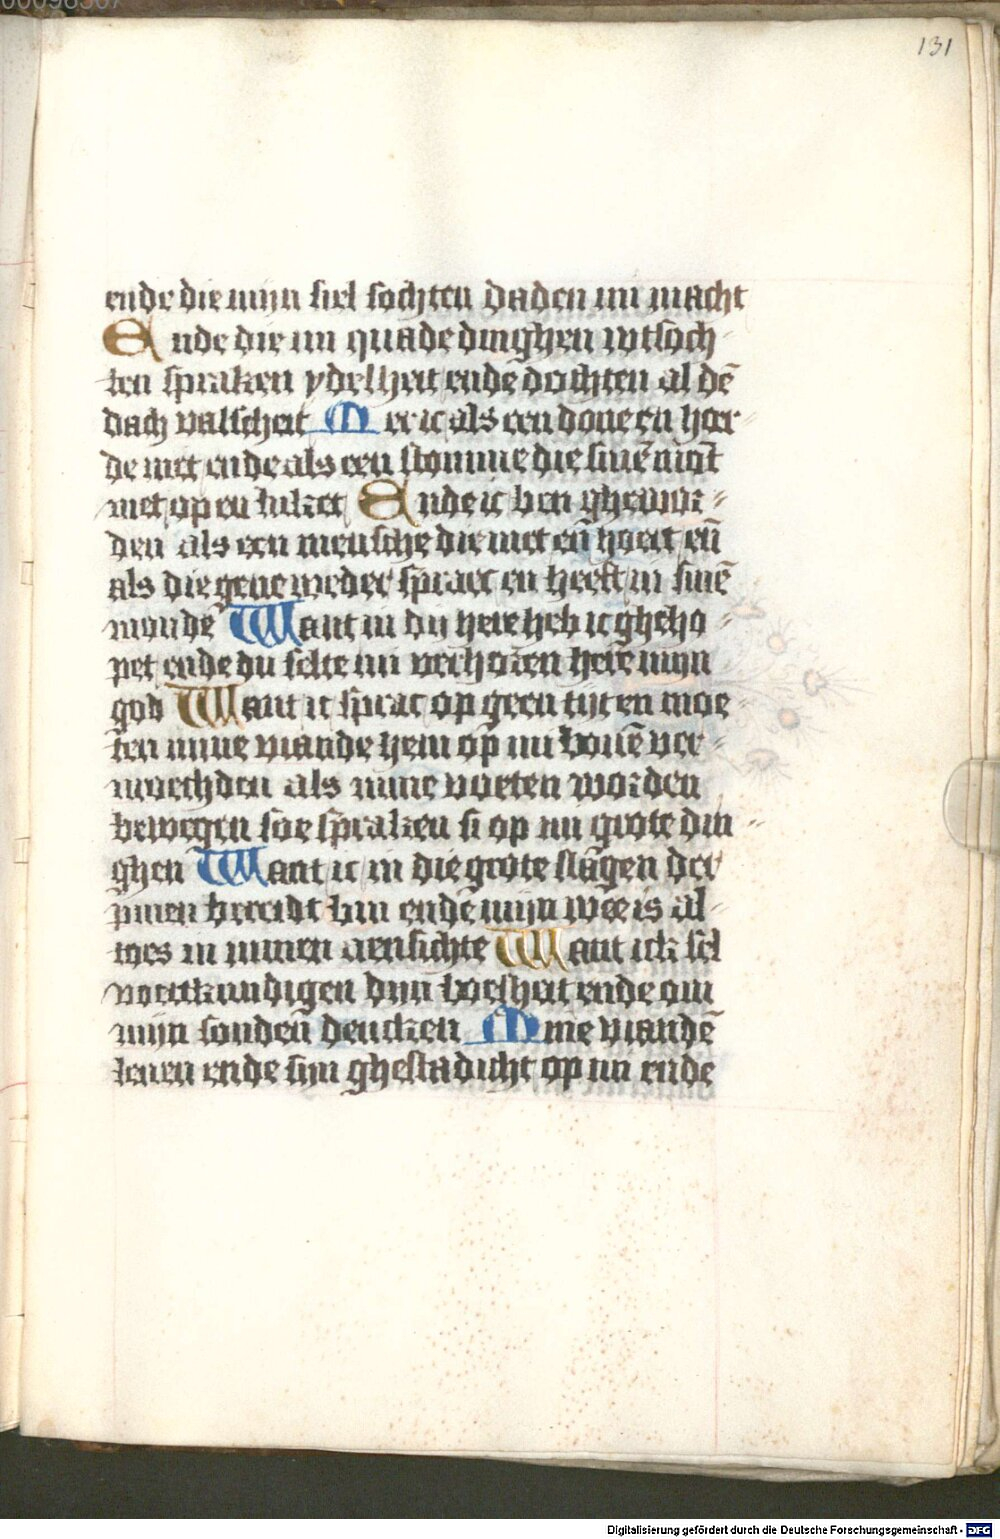 131
ende die mijn siel sochten daden mi macht
Ende die mi quade dinghen wtsoch
ten spraken ydelheit endē dochten al dē
dach valscheit Mer ic als een doue en hoer
de niet ende als een stomme die sinē mōt
niet op en luket Ende ic ben ghewor
den als een mensche die niet eñ hoert eñ
als die gene weder spraec en heeft in sinē
mondē Want in dy here heb ic gheho
pet ende du selte mi verhoren here mijn
god Want ic sprac op geen tijt en moe
ten mine viande hem op mi bouē ver
vroechden als mine voeten worden
bewegen soe spraken si op mi grote din
ghen Want ic in die grote slagen der
pinen bereidt bin ende mijn wee is al
toes in minen aensichte Want ick sel
voertkundigen dijn boesheit ende om
mijn sonden dencken Mine viandē
leuen ende sijn ghestadicht op mi ende
Digitalisierung gefördert durch die Deutsche Forschungsgemeinschaft - DFG